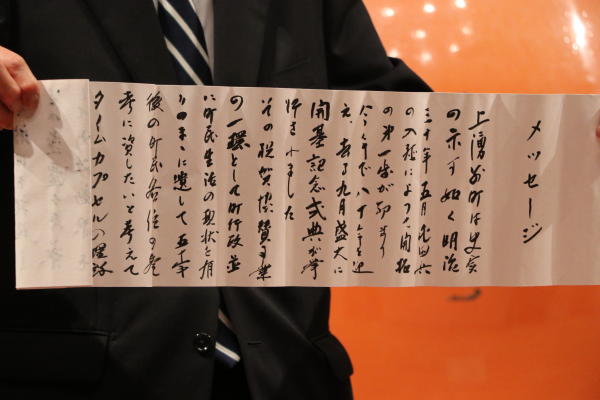 メッセージ
上湧別町は史実
の示す如く明治
三十年五月屯田兵
の入植によって開拓
の第一歩が印され
今年で八十年を迎
え去る九月盛大に
開基記念式典が挙
行されました
その祝賀協賛事業
の一環として町行政並
に町民生活の現状を有
りのまゝに遺して五十年
後の町民各位の参
考に資したいと考えて
タイムカプセルの埋設